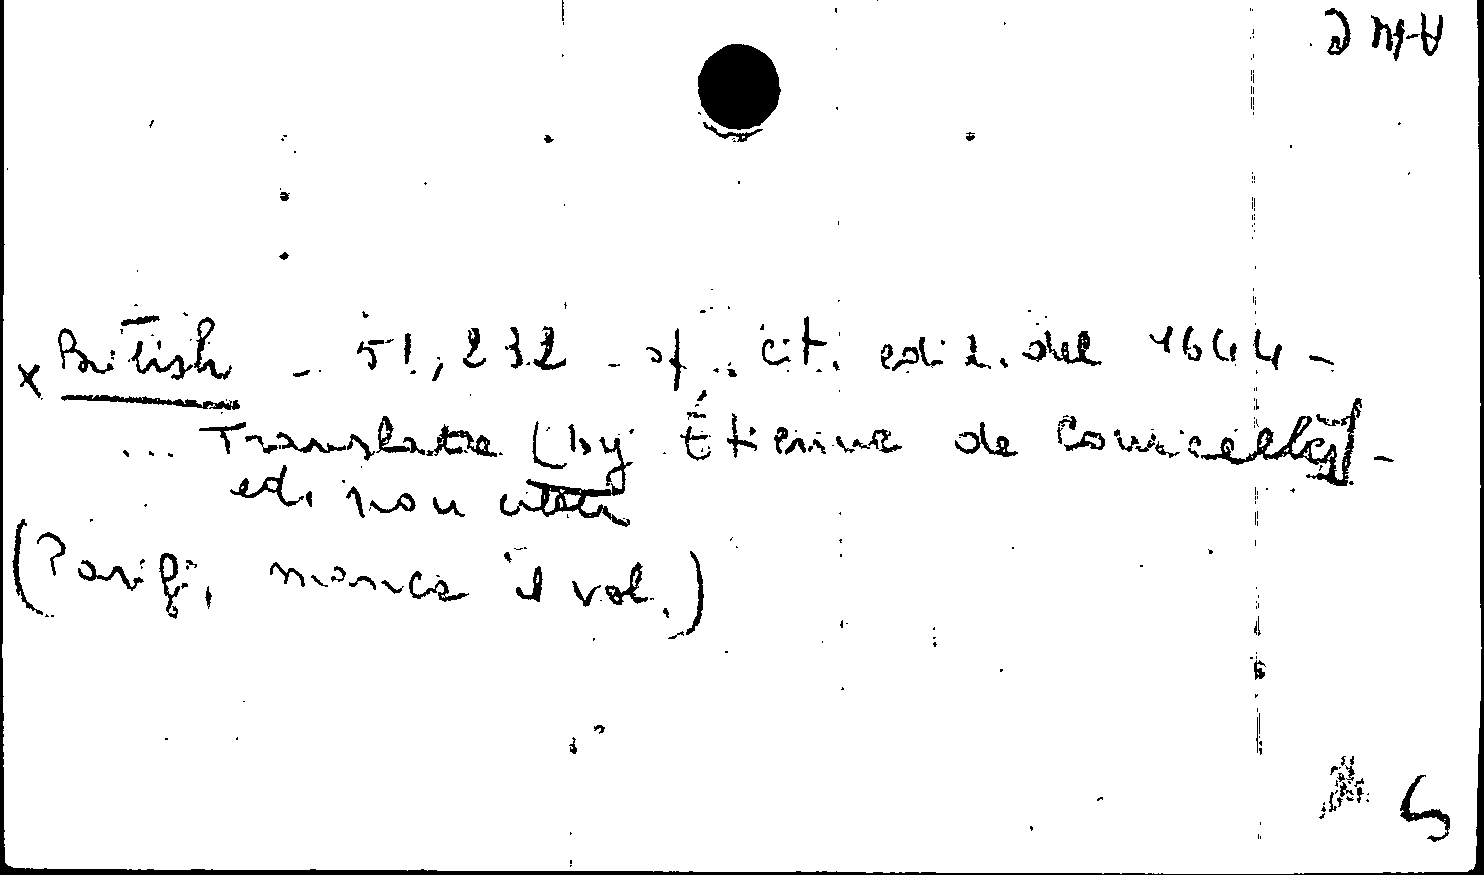 x British - 51,232 - op. cit. ediz. del 1644 -
... Translate [by Étienne de Courcelles] -
ed. non vista
(Parigi, manca il vol.)